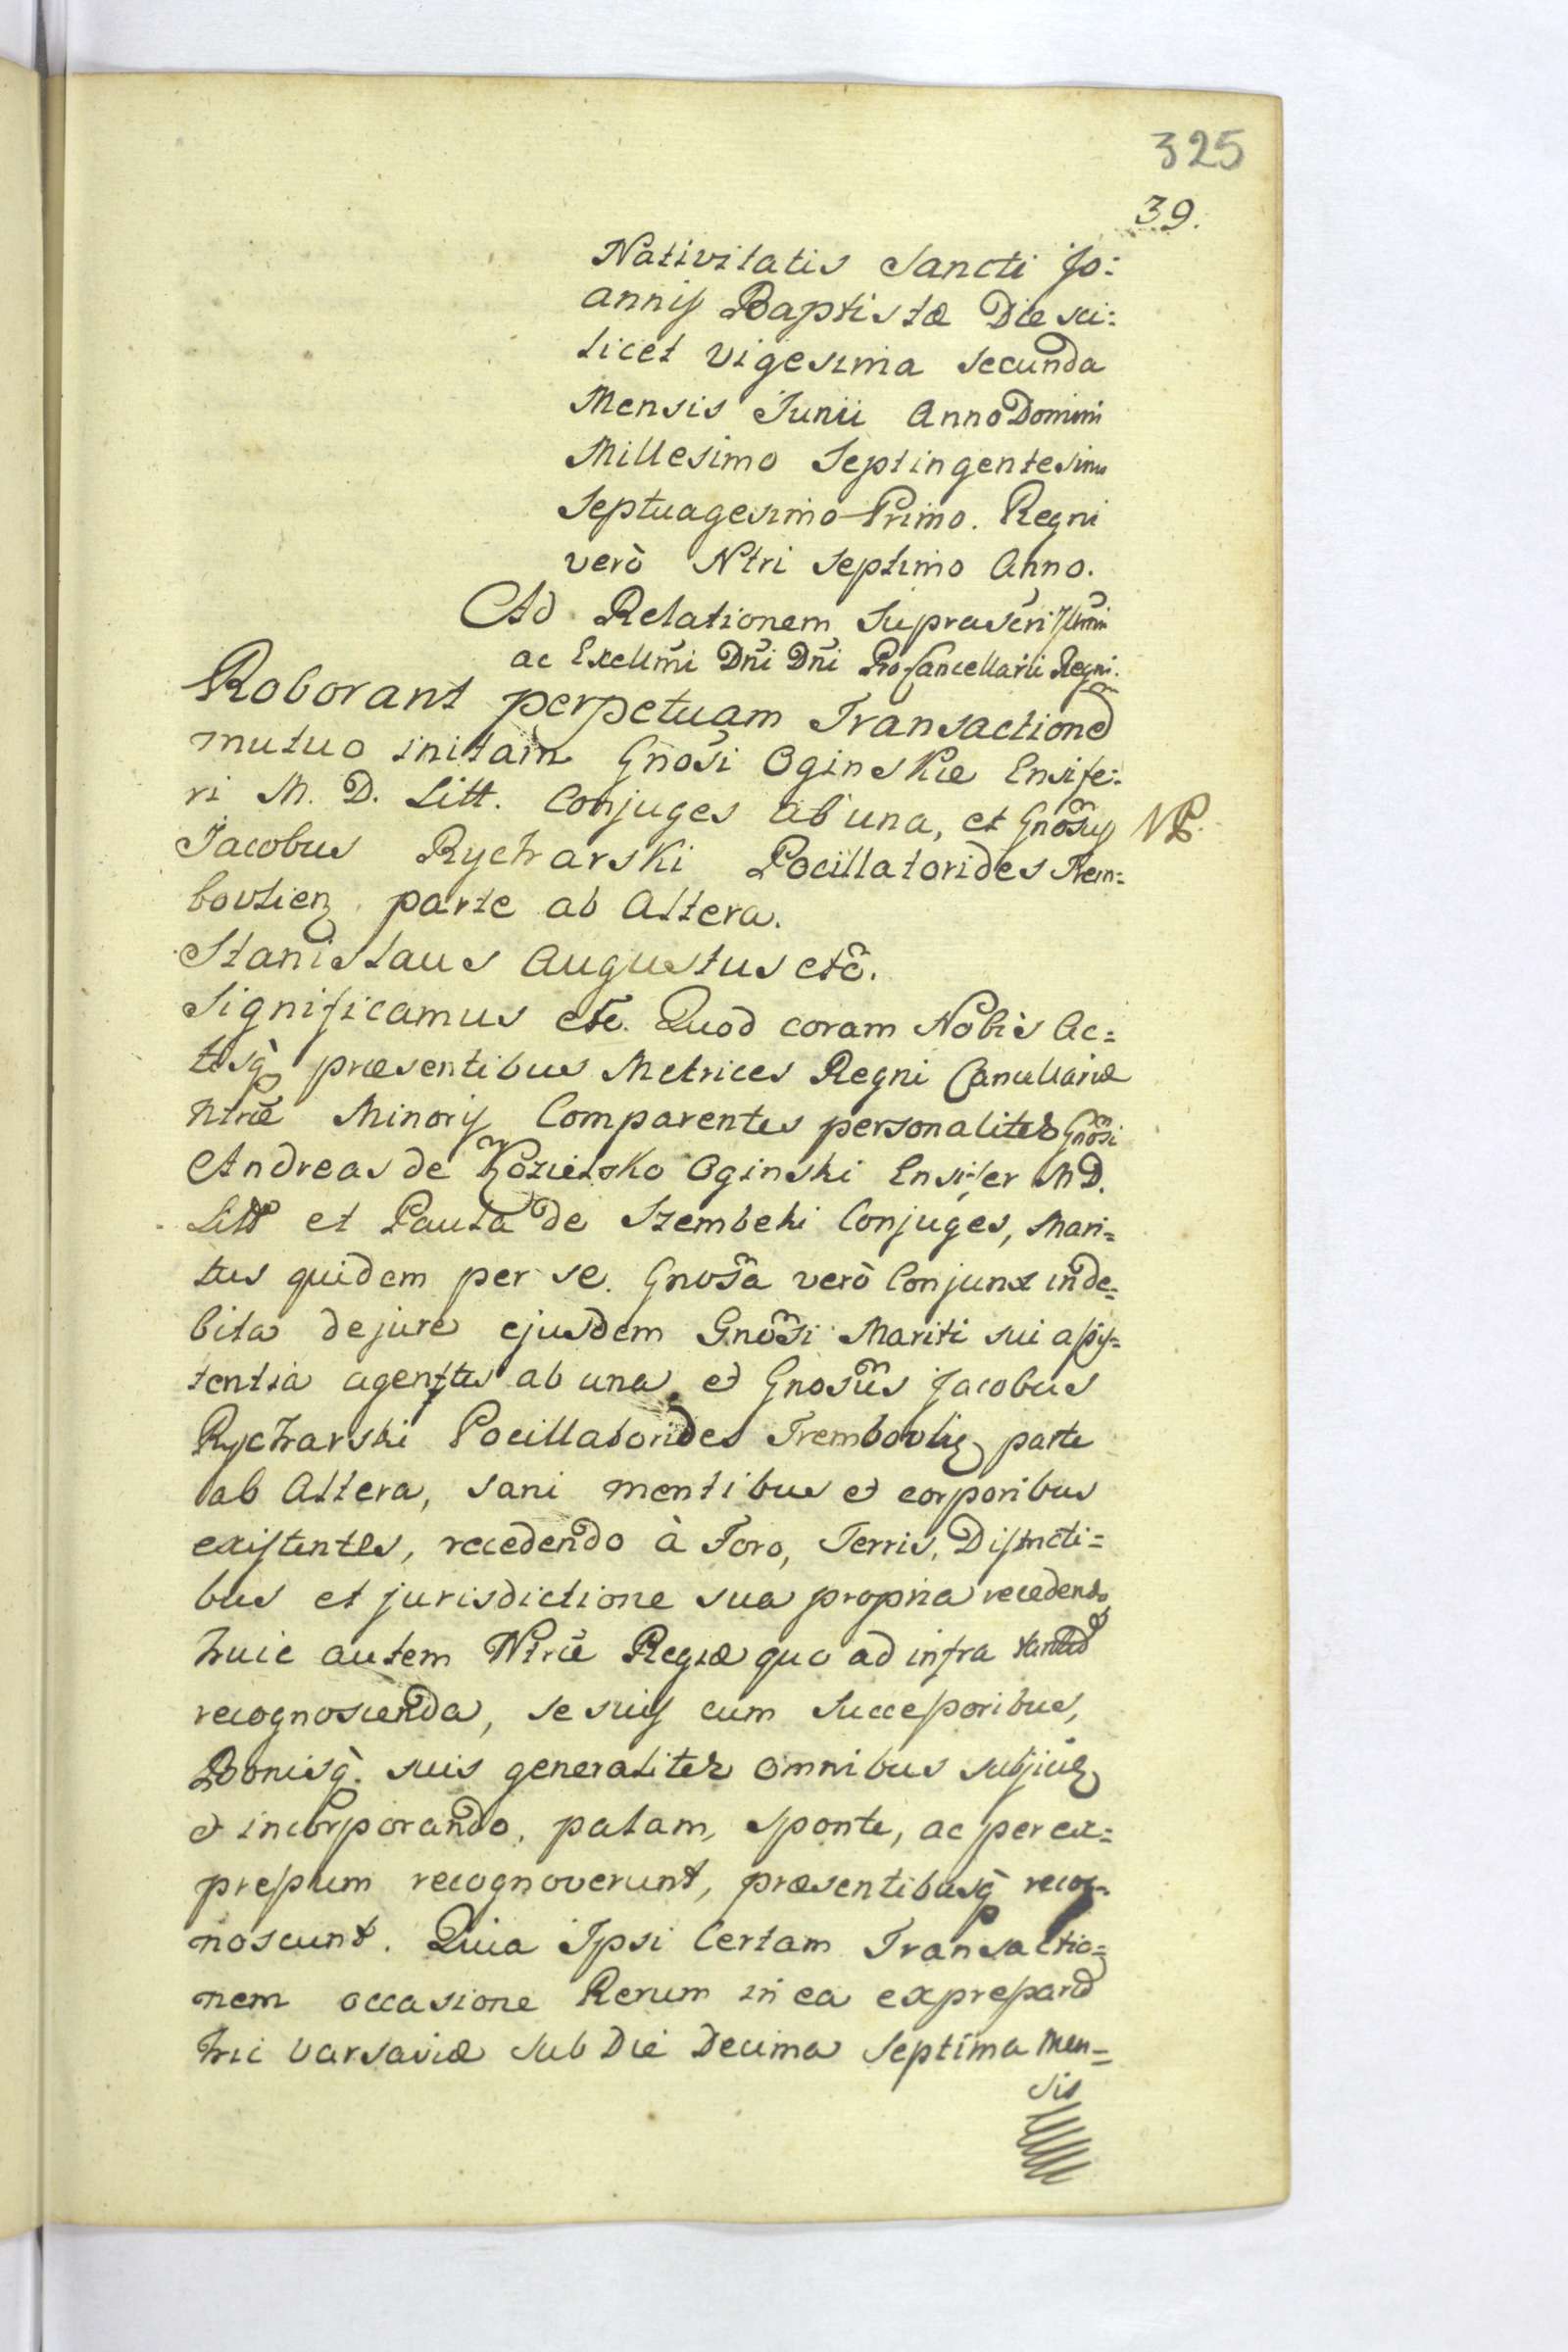 325
39.
Nativitatis Sancti Jo:
annis Baptistæ Die sci:
licet vigesima secunda
Mensis Junii Anno Domini
Millesimo Septingentesimo
Septuagesimo Primo. Regni
verò Ntri Septimo Anno.
Ad Relationem
ac Excellmi Dñi Dñi ProCancellarii Regni.
Roborant perpetuam Transactionē
mutuo initam Gnosi Oginskie Ensife:
ri M. D. Litt. Conjuges ab una, et Gnosus NP.
Jacobus Rycharski Pocillatorides Trem:
bovlien parte ab Altera.
Stanislaus Augustus etc.
Significamus etc. Quod coram Nobis Ac=
tisq̀ præsentibus Metrices Regni Cancellariæ
Ntræ Minoris Comparentes personaliter Gnosi
Andreas de Kozielsko Oginski Ensifer M D.
Litt et Paula de Szembeki Conjuges, Mari=
tus quidem per se. Gnosa verò Conjunx in de=
bita de jure ejusdem Gnosi Mariti sui assis=
tentia agentes ab una et Gnosus Jacobus
Rycharski Pocillatorides Trembovlien parte
ab Altera, sani mentibus et corporibus
existentes, recedendo à Foro, Terris, Districti=
bus et jurisdictione sua propria recedendo,
huic autem Ntræ Regiæ quo ad infra
recognoscenda, se suis cum Successoribus,
Bonisq̀. suis generaliter omnibus subjicien
et incorporando, palam, sponte, ac per ex=
pressum recognoverunt, præsentibusq̀ recog=
noscunt. Quia Ipsi Certam Transactio=
nem occasione Rerum in ea expressarū
hic Varsaviæ sub Die Decima Septima Men=
sis